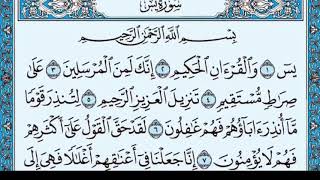 سورة يس
بِسْمِ اللَّهِ الرَّحْمَٰنِ الرَّحِيمِ
يسٓ ١ وَالْقُرْءَانِ الْحَكِيمِ ٢ إِنَّكَ لَمِنَ الْمُرْسَلِينَ ٣ عَلَىٰ
صِرَاطٍ مُّسْتَقِيمٍ ٤ تَنزِيلَ الْعَزِيزِ الرَّحِيمِ ٥ لِتُنذِرَ قَوْمًا
مَّا أُنذِرَ ءَابَاؤُهُمْ فَهُمْ غَافِلُونَ ٦ لَقَدْ حَقَّ الْقَوْلُ عَلَىٰ أَكْثَرِهِمْ
فَهُمْ لَا يُؤْمِنُونَ ٧ إِنَّا جَعَلْنَا فِي أَعْنَاقِهِمْ أَغْلَالًا فَهِيَ إِلَى